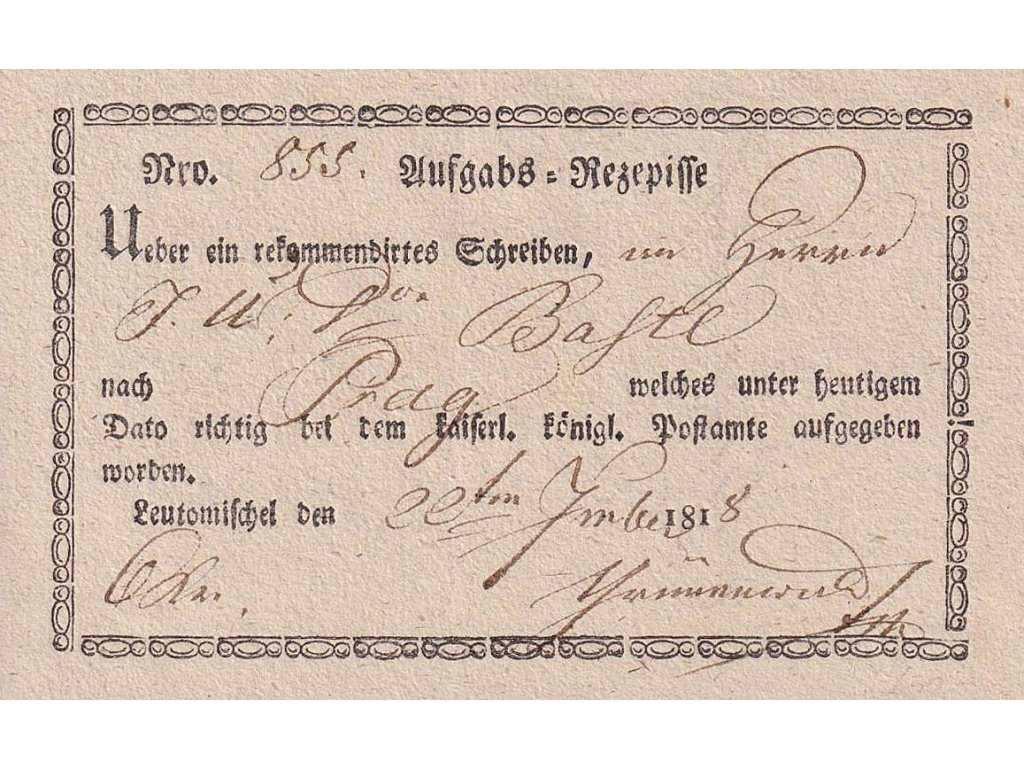 Nro. 855. Aufgabs-Rezepisse
Ueber ein rekommendirtes Schreiben, an Herrn
J. U. Dor Bahtl
nach Prag welches unter heutigem
Dato richtig bei dem kaiserl. königl. Postamte aufgegeben
worden.
Leutomischel den 22ten 1818